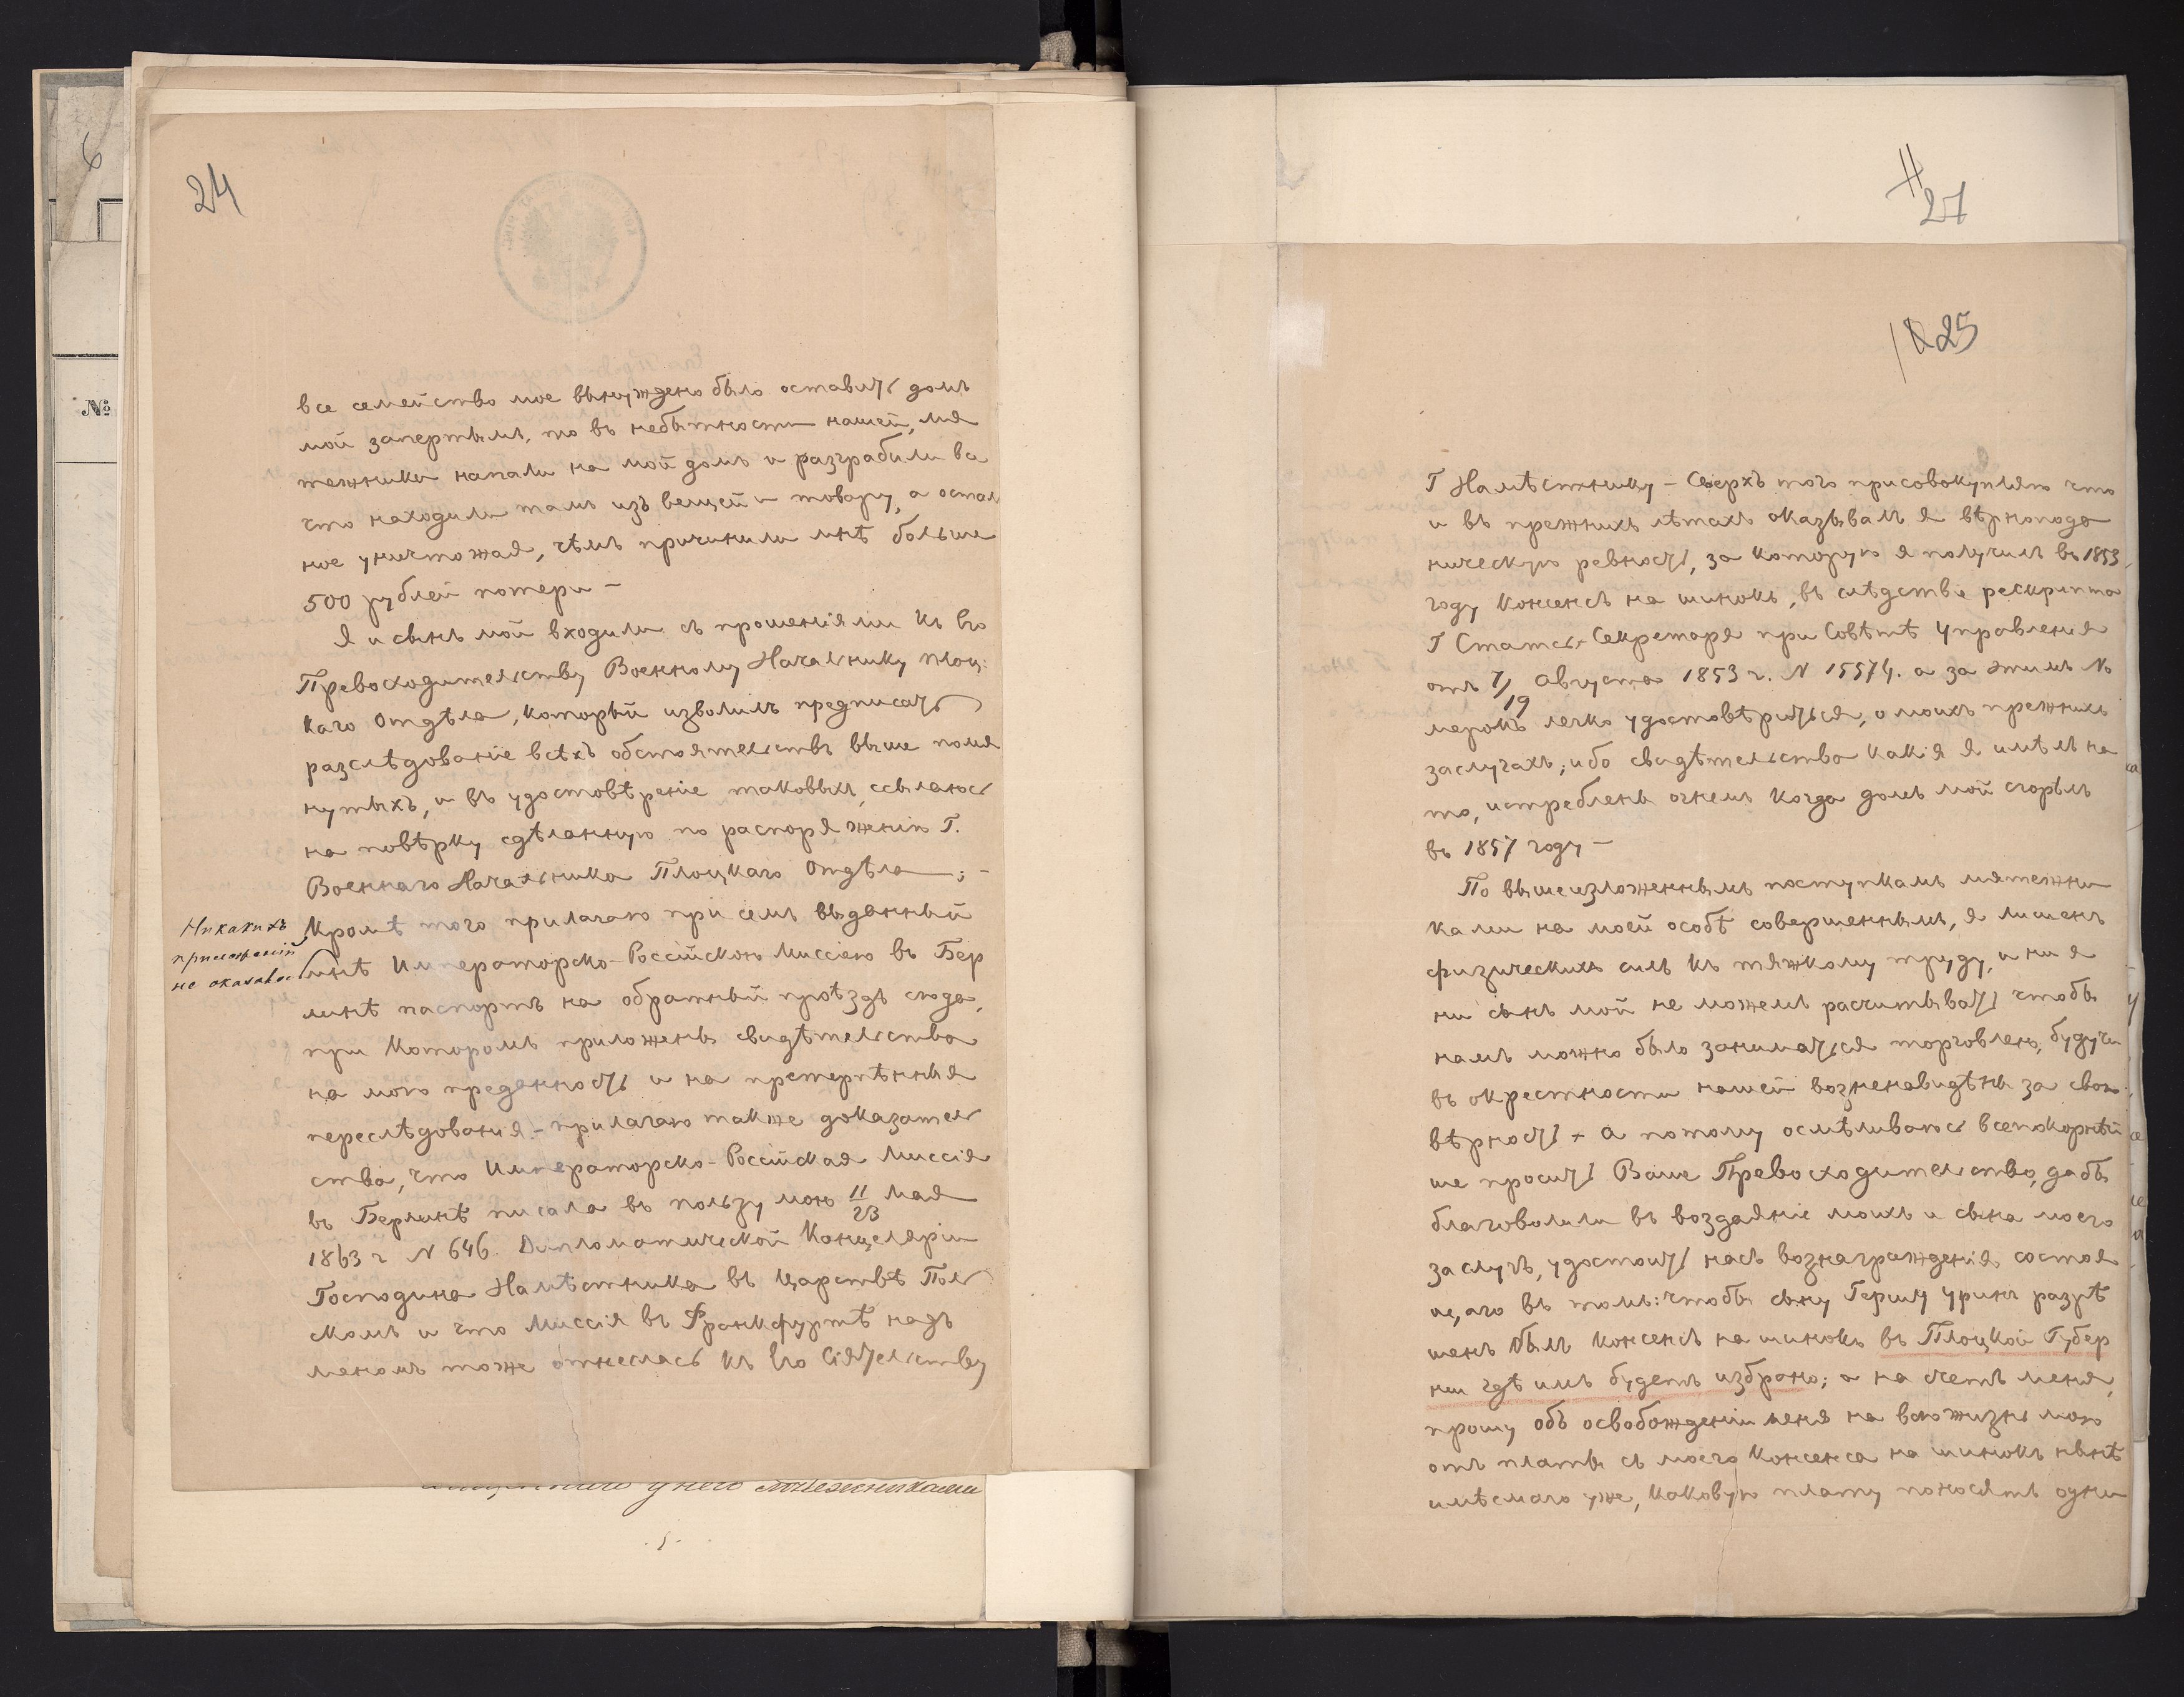 6
№
24
все семейство мое вынуждено было оставить домъ
мой запертымъ, то въ небытности нашей, мя
тежники напали на мой домъ и разграбили все
что находили тамъ изъ вещей и товару, а осталь
ное уничтожая, чѣмъ причинили мнѣ больше
500 рублей потери –
Я и сынъ мой входили съ прошеніями къ Его
Превосходительству Военному Начальнику Плоц:
каго Отдѣла, который изволилъ предписать
разслѣдованіе всѣхъ обстоятельствъ выше помя
нутыхъ, и въ удостовѣреніе таковыхъ, ссылаюсь
на повѣрку сдѣланную по распоряженію Г.
Военнаго Начальника Плоцкаго Отдѣла ; –
Кромѣ того прилагаю при семъ выданный
мнѣ Императорско-Россійскою Миссіею въ Бер
линѣ паспортъ на обратный проѣздъ сюда,
при которомъ приложены свидѣтельства
на мою преданность и на претерпѣнныя
переслѣдованія – прилагаю также доказатель
ства, что Императорско-Россійская Миссія
въ Берлинѣ писала въ пользу мою 11/23 Мая
1863 г N 646. Дипломатической Канцеляріи
Господина Намѣстника въ Царствѣ Поль
скомъ и что Миссія въ Франкфуртѣ надъ
меномъ тоже отнеслась къ Его Сіятельству
Никакихъ
приложеній
не оказалось
у него мятежниками
11
27
25
Г Намѣстнику – Сверхъ того присовокупляю что
и въ прежнихъ лѣтахъ оказывалъ я вѣрнопода
ническую ревность, за которую я получилъ въ 1853
году консенсъ на шинокъ, въ слѣдствіе рескрипта
Г Статсъ-Секретаря при Совѣтѣ Управленія
отъ 7/19 Августа 1853 г. N 15574. а за этимъ N
меромъ легко удостовѣриться, о моихъ прежнихъ
заслугахъ; ибо свидѣтельства какія я имѣлъ на
то, истреблены огнемъ когда домъ мой сгорѣлъ
въ 1857 году –
По вышеизложеннымъ поступкамъ мятежни
ками на моей особѣ совершеннымъ, я лишенъ
физическихъ силъ къ тяжкому труду, и ни я
ни сынъ мой не можемъ расчитывать чтобы
намъ можно было заниматься торговлею, будучи
въ окрестности нашей возненавидѣны за свою
вѣрность – А потому осмѣливаюсь всепокорнѣй
ше просить Ваше Превосходительство, дабы
благоволили въ воздаяніе моихъ и сына моего
заслугъ, удостоить насъ вознагражденія состоя
щаго въ томъ: чтобы сыну Гершу Уринъ разрѣ
шенъ былъ консенсъ на шинокъ въ Плоцкой Губер
ніи гдѣ имъ будетъ избрано; а на счетъ меня,
прошу объ освобожденіи меня на всю жизнь мою
отъ платы съ моего консенса на шинокъ нынѣ
имѣемаго уже, каковую плату поносятъ одни